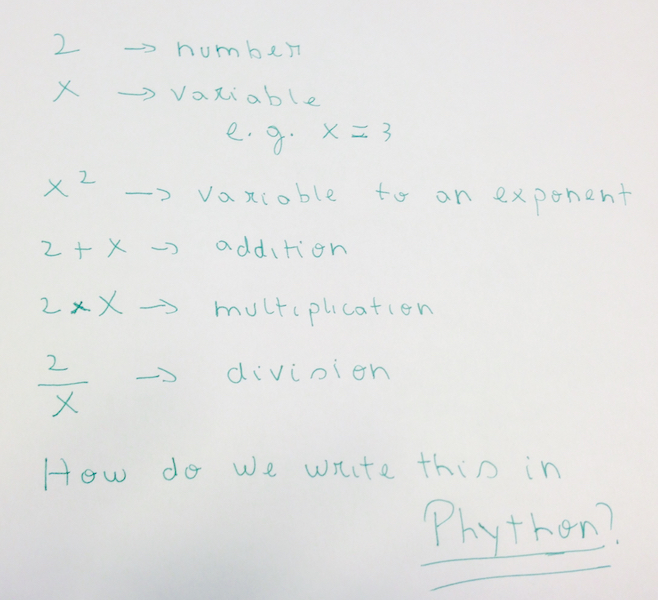 2 → number
x → variable
e.g. x = 3
x² → variable to an exponent
2 + x → addition
2 × x → multiplication
2/x → division
How do we write this in
Phython?